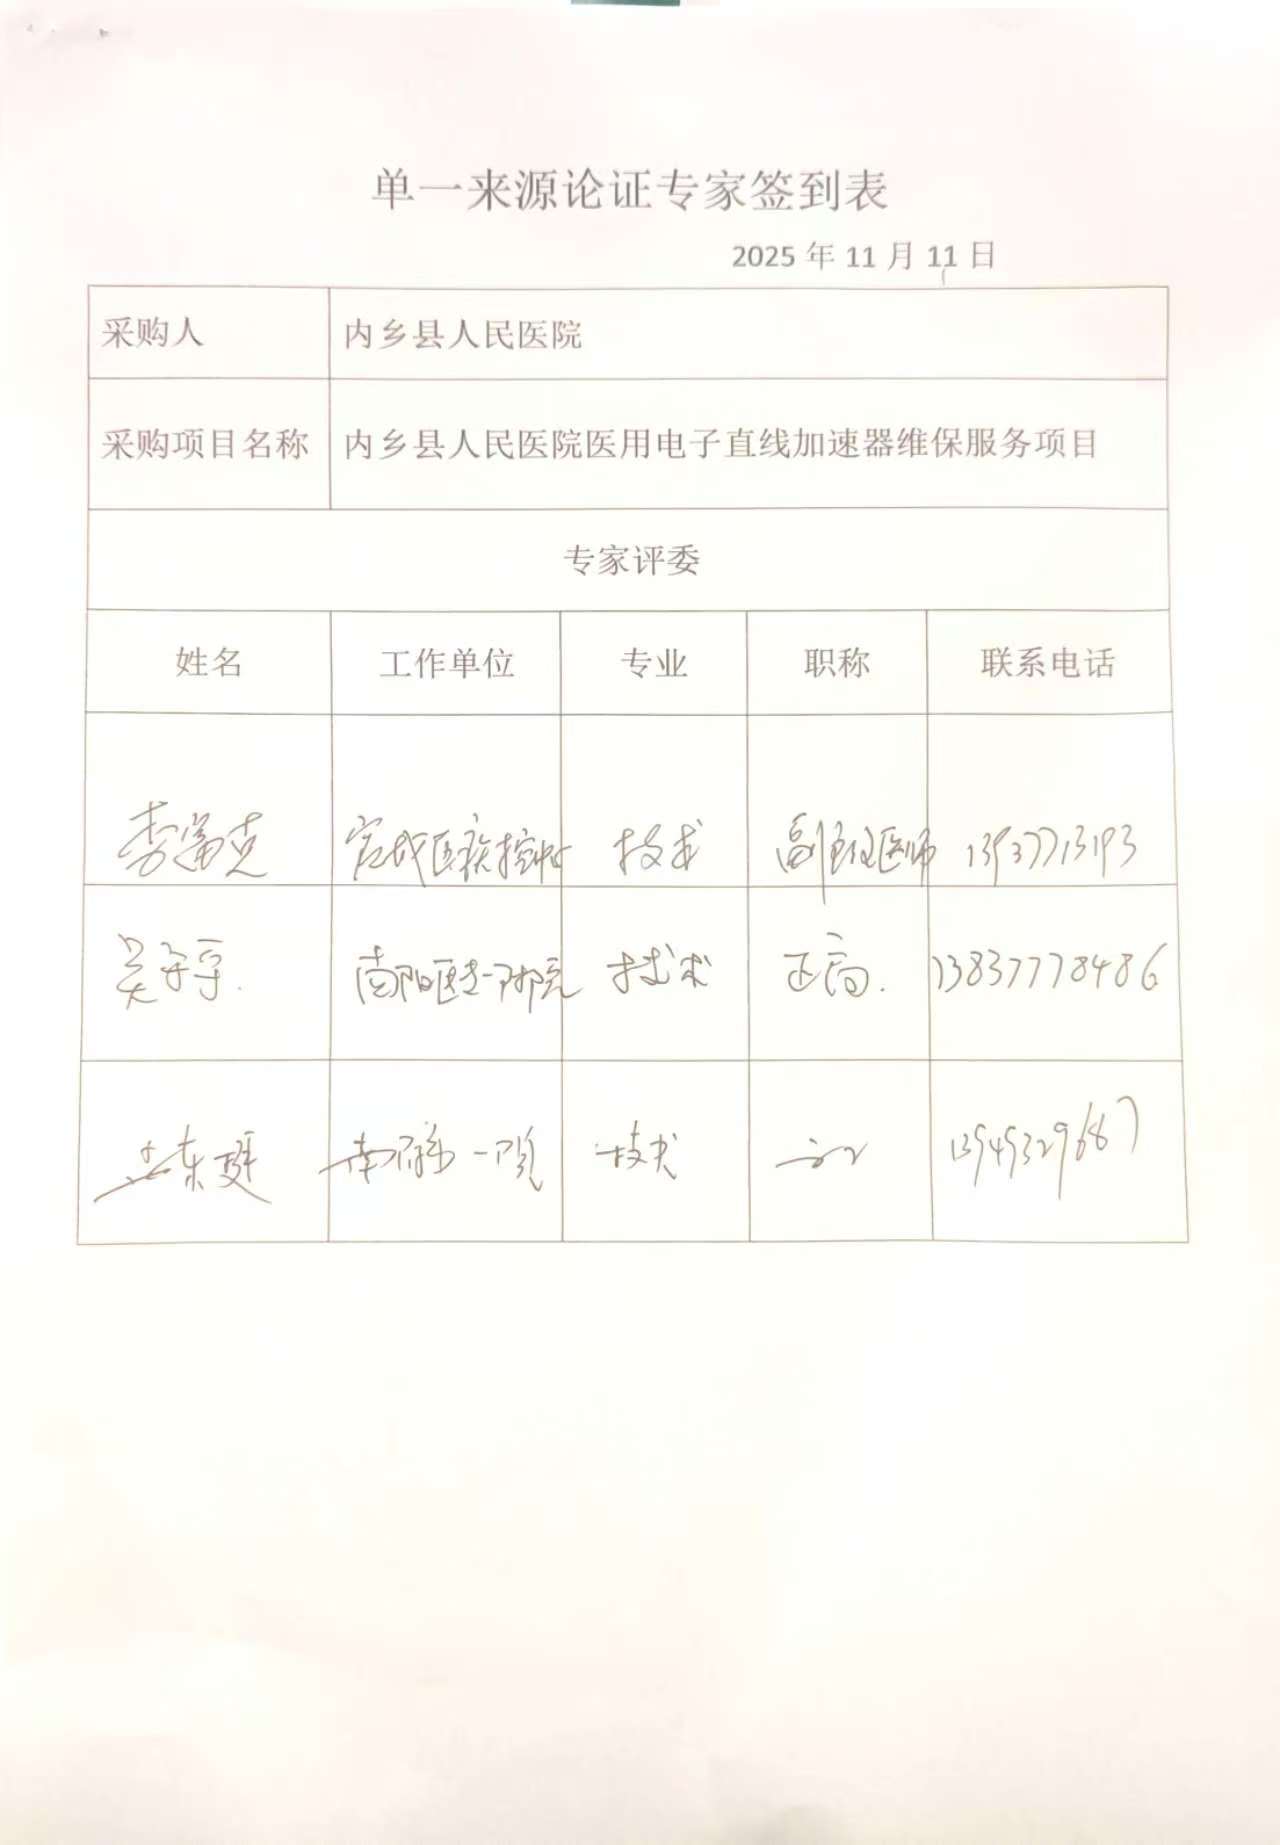 单一来源论证专家签到表
2025 年 11 月 11 日
采购人 内乡县人民医院
采购项目名称 内乡县人民医院医用电子直线加速器维保服务项目
专家评委
姓名 工作单位 专业 职称 联系电话
李富克 宛城区疾控中心 技术 副主任医师 13937713193
吴 南阳医专一附院 技术 正高. 13837778486
东 技术 13949329687